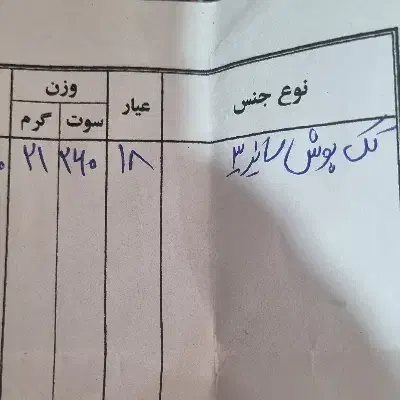 نوع جنس عیار وزن
سوت گرم
تک پوش سایز ۳ ۱۸ ۲۶۰ ۲۱